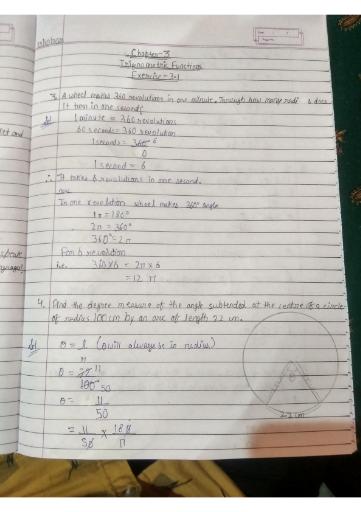 Chapter-3
Trigonometric Functions
Exercise-3.1
3. A wheel makes 360 revolutions in one minute. Through how many radi s does
It turn in one second?
Sol 1 minute = 360 revolutions
60 seconds = 360 revolution
1 seconds = 360 6
1 second = 6
∴ It takes 6 revolutions in one second.
In one revolution wheel makes 360° angle
1π = 180°
2π = 360°
360° = 2π
For 6 revolution
i.e. 360×6 = 2π × 6
= 12 π
4. Find the degree measure of the angle subtended at the centre of a circle
of radius 100 cm by an arc of length 22 cm.
Sol θ = l (θ will always be in radian)
r
θ = 22 11
100 50
θ = 11
50
= 11 × 180
50 π
22 cm